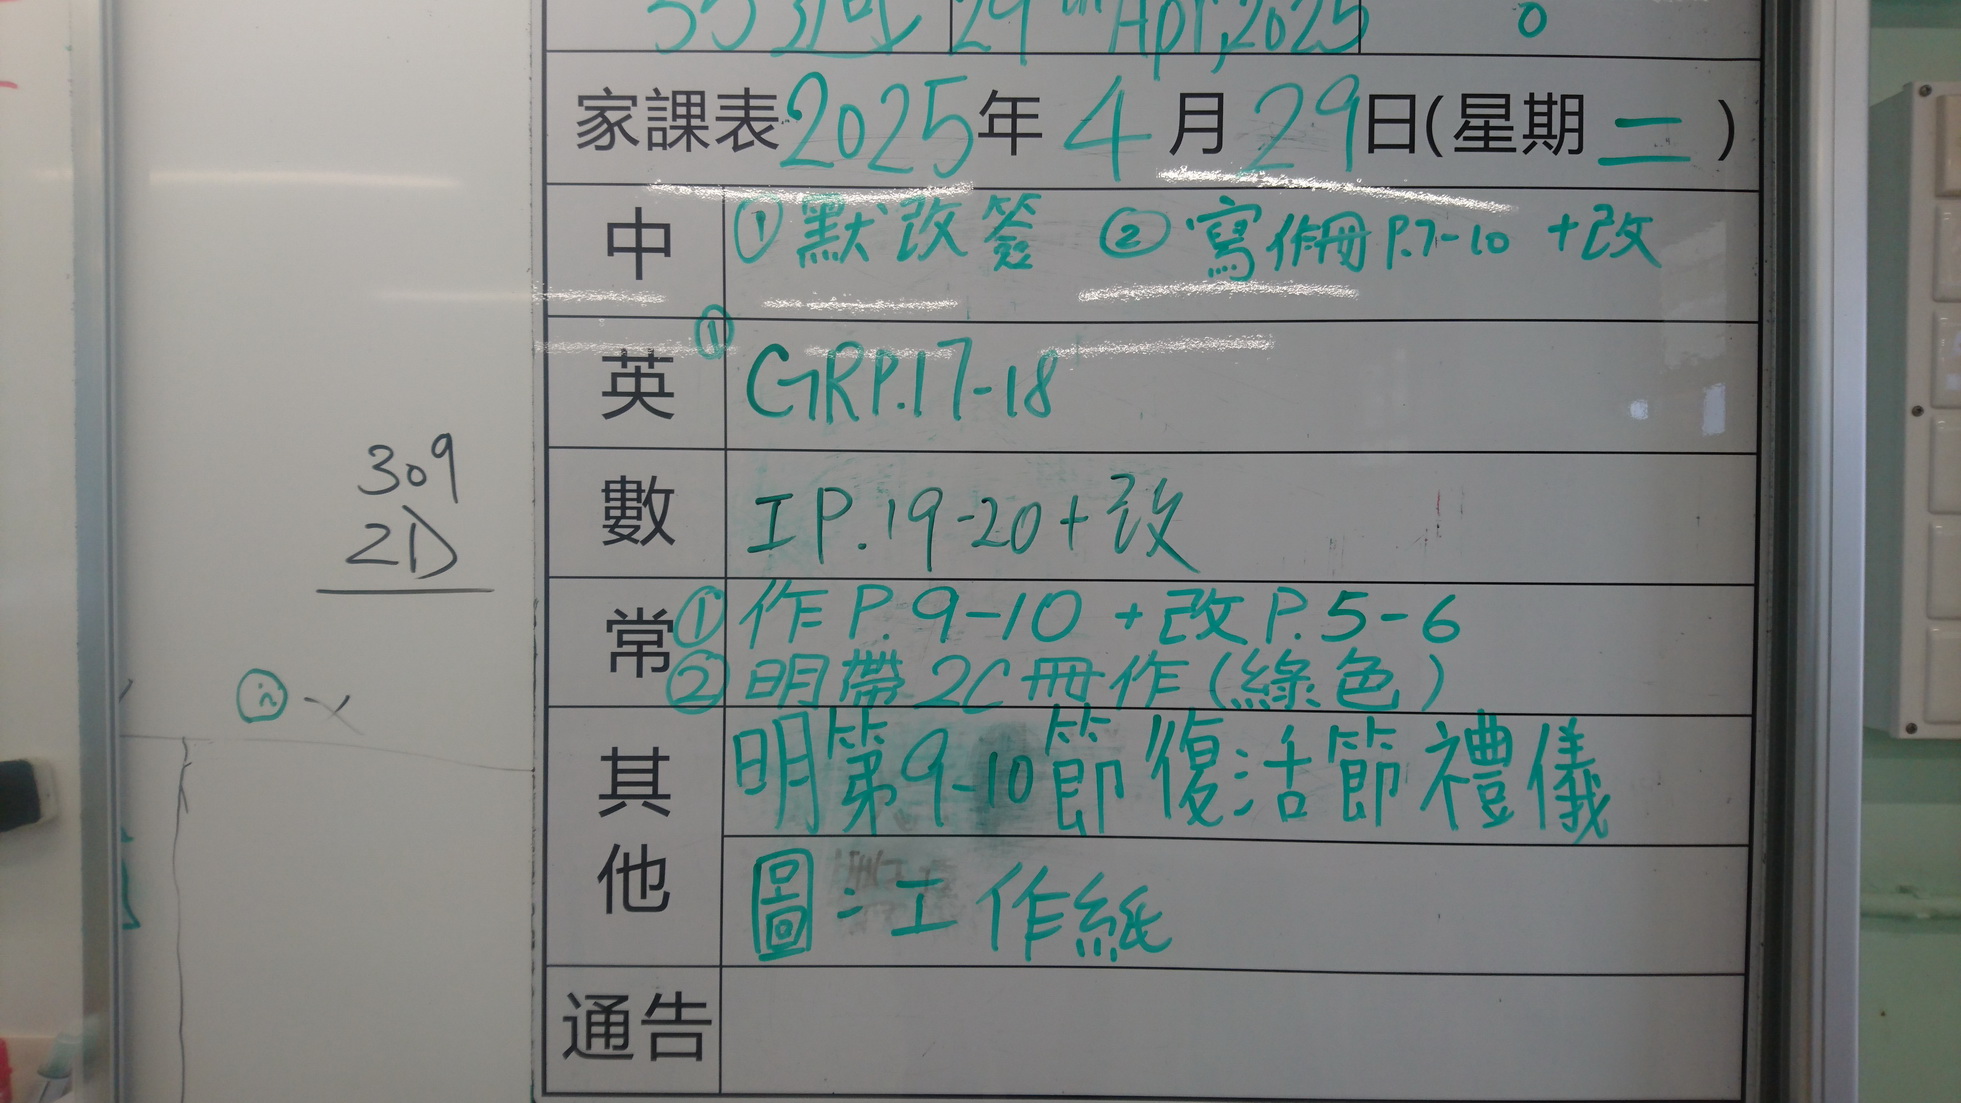 29th Apr, 2025
0
家課表2025年4月29日(星期二)
中 ①默改簽 ②寫作冊P.7-10 +改
英 ①GRP.17-18
數 IP.19-20+改
常 ①作P.9-10 +改P.5-6
②明帶2C冊作(綠色)
其他 明第9-10節復活節禮儀
圖:工作紙
通告
309
2D